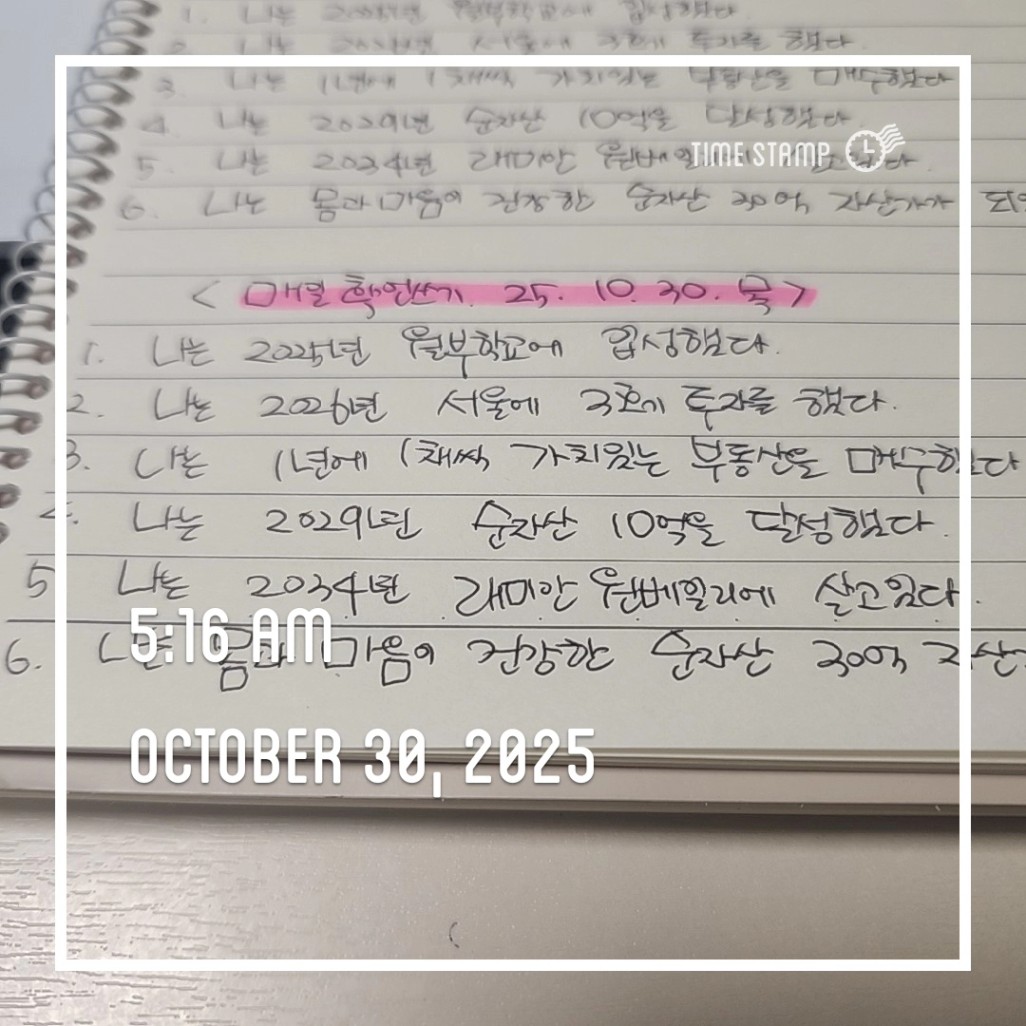 1. 나는 2025년 월부학교에 입성했다.
2. 나는 2026년 서울에 3호기 투자를 했다.
3. 나는 1년에 1채씩 가치있는 부동산을 매수했다
4. 나는 2029년 순자산 10억을 달성했다.
5. 나는 2034년 래미안 원베일리에 살고있다.
6. 나는 몸과 마음이 건강한 순자산 30억 자산가가 되
TIME STAMP
< 매일 확언쓰기. 25. 10. 30. 목 >
1. 나는 2025년 월부학교에 입성했다.
2. 나는 2026년 서울에 3호기 투자를 했다.
3. 나는 1년에 1채씩 가치있는 부동산을 매수했다
4. 나는 2029년 순자산 10억을 달성했다.
5 나는 2034년 래미안 원베일리에 살고있다.
6. 나는 몸과 마음이 건강한 순자산 30억 자산
5:16 AM
OCTOBER 30, 2025